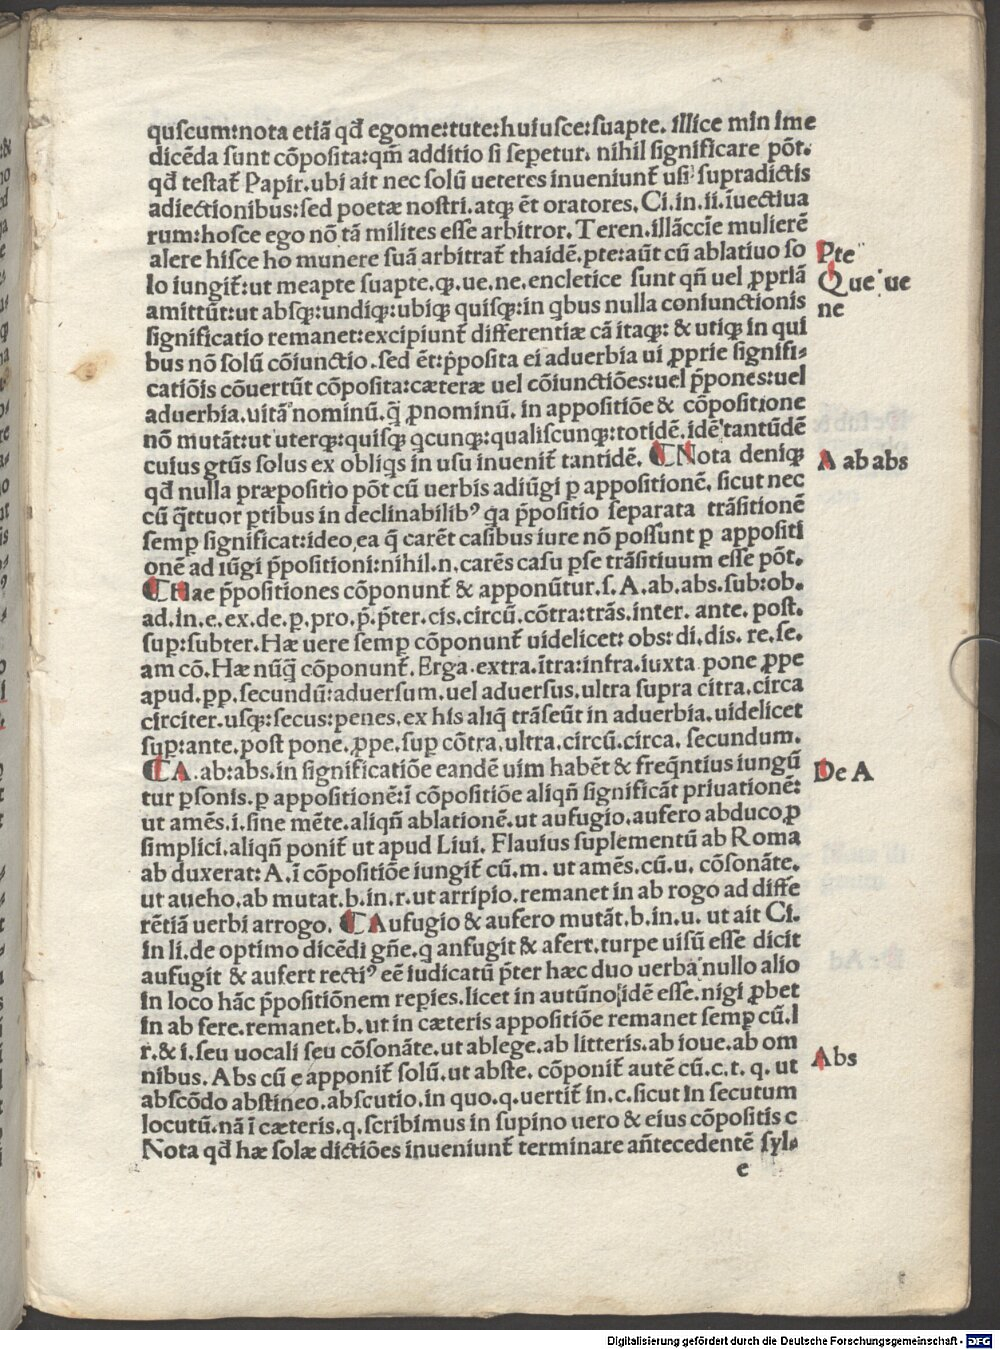 quſcum:nota etiã qđ egome:tute:huiuſce:ſuapte. illice minime
dicẽda ſunt cõpoſita:qm̃ additio ſi ſepetur. nihil ſignificare põt.
qđ teſtat̃ Papir.ubi ait nec ſolũ ueteres inueniunt̃ uſi ſupradictis
adiectionibus:ſed poetæ noſtri.atqꝫ ẽt oratores. Ci.in.ii.ĩuectiua
rum:hoſce ego nõ tã milites eſſe arbitror. Teren.illãccie mulierẽ
alere hiſce ho munere ſuã arbitrat̃ thaidẽ.pte:aũt cũ ablatiuo ſo
lo iungit̃:ut meapte ſuapte.qꝫ.ue.ne.encletice ſunt qñ uel ꝓpriã
amittũt:ut abſqꝫ:undiqꝫ:ubiqꝫ quiſqꝫ:in qbus nulla coniunctionis
ſignificatio remanet:excipiunt̃ differentiæ cã itaqꝫ: & utiqꝫ in qui
bus nõ ſolũ cõiunctio.ſed ẽt:p̃poſita ei aduerbia ui ꝓprie ſignifi⸗
catiõis cõuertũt cõpoſita:cæteræ uel cõiunctiões:uel p̃pones:uel
aduerbia.uitã nominũ.q̃ ꝓnominũ. in appoſitiõe & cõpoſitione
nõ mutãt:ut uterqꝫ:quiſqꝫ qcunqꝫ:qualiſcunqꝫ:totidẽ.idẽ tantũdẽ
cuius gtũs ſolus ex obliqs in uſu inuenit̃ tantidẽ. ⸿Nota deniqꝫ
qđ nulla præpoſitio põt cũ uerbis adiũgi ꝑ appoſitionẽ. ſicut nec
cũ q̃ttuor ꝑtibus in declinabilibꝰ qa p̃poſitio ſeparata trãſitionẽ
ſemꝑ ſignificat:ideo ea q̃ carẽt caſibus iure nõ poſſunt ꝑ appoſiti
onẽ ad iũgi p̃poſitioni:nihil.n.carẽs caſu ꝑſe trãſitiuum eſſe põt.
⸿Hae p̃poſitiones cõponunt̃ & apponũtur.ſ.A.ab.abs.ſub:ob.
ad.in.e.ex.de.ꝑ.pro.p̃.p̃ter.cis.circũ.cõtra:trãs.inter. ante. poſt.
ſup:ſubter.Hæ uere ſemꝑ cõponunt̃ uidelicet: obs: di. dis. re. ſe.
am cõ.Hæ nũq̃ cõponunt̃. Erga.extra.ĩtra:infra.iuxta pone ꝓpe
apud.ꝓꝑ.ſecundũ:aduerſum.uel aduerſus.ultra ſupra citra.circa
circiter.uſqꝫ:ſecus:penes.ex his aliq̃ trãſeũt in aduerbia.uidelicet
ſuꝑ:ante.poſt pone.ꝓpe.ſuꝑ cõtra.ultra.circũ.circa. ſecundum.
⸿A.ab:abs.in ſignificatiõe eandẽ uim habẽt & freq̃ntius iungũ
tur ꝑſonis.ꝑ appoſitionẽ:ĩ cõpoſitiõe aliqñ ſignificãt priuationẽ:
ut amẽs.i.ſine mẽte.aliqñ ablationẽ.ut aufugio.aufero abduco.ꝓ
ſimplici.aliqñ ponit̃ ut apud Liui. Flauius ſuplementũ ab Roma
ab duxerat: A.ĩ cõpoſitiõe iungit̃ cũ.m. ut amẽs.cũ.u. cõſonãte.
ut aueho.ab mutat.b.in.r.ut arripio.remanet in ab rogo ad diffe
rẽtiã uerbi arrogo. ⸿Aufugio & aufero mutãt.b.in.u. ut ait Ci.
in li.de optimo dicẽdi gñe.q anfugit & afert.turpe uiſũ eſſe dicit
aufugit & aufert rectiꝰ eẽ iudicatũ p̃ter hæc duo uerba nullo alio
in loco hãc p̃poſitiõnem reꝑies.licet in autũno idẽ eſſe.nigi ꝓbet
in ab fere.remanet.b.ut in cæteris appoſitiõe remanet ſemꝑ cũ.l
r.& i.ſeu uocali ſeu cõſonãte.ut ablege.ab litteris.ab ioue.ab om
nibus. Abs cũ e apponit̃ ſolũ.ut abſte. cõponit̃ autẽ cũ.c.t. q. ut
abſcõdo abſtineo.abſcutio.in quo.q.uertit̃ in.c.ſicut in ſecutum
locutũ.nã ĩ cæteris.q.ſcribimus in ſupino uero & eius cõpoſitis c
Nota qđ hæ ſolæ dictiões inueniunt̃ terminare añtecedentẽ ſyl⸗
e
Pte
Que ue
ne
A ab abs
De A
Abs
Digitalisierung gefördert durch die Deutsche Forschungsgemeinschaft - DFG